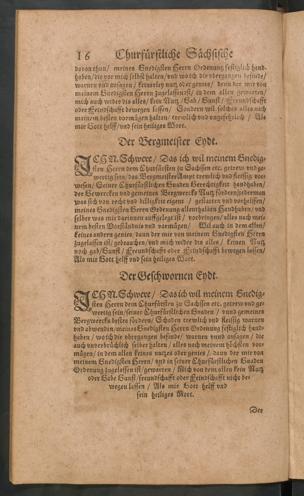 16 Churfürstliche Sächsische
davon thun / meines Gnedigsten Herrn Ordenung festiglich hand-
haben / die vor mich selbst halten / und wo ich die ubergangen befinde /
warnen und ansagen / keinen nutz oder genies / denn der mir von
meinem Gnedigsten Herrn zugelassen ist / in dem allen gewarten /
mich auch wider dis alles / kein Nutz / Gab / Gunst / Freundschafft
oder Feindschafft bewegen lassen / Sondern wil solches alles nach
meinem besten vormügen halten / trewlich und ungefehrlich / Als
mir Gott helff / und sein heiliges Wort.
Der Bergmeister Eydt.
ICH N. Schwere / Das ich wil meinem Gnedig-
sten Herrn dem Churfürsten zu Sachssen etc. getrew und ge-
wertig sein / das Bergmeister Ampt trewlich und fleissig vor-
wesen / Seiner Churfürstlichen Gnaden Gerechtigkeit handhaben /
der Gewercken und gemeinen Bergwercks Nutz fördern / jederman
was sich von recht und billigkeit eigent / gestatten und vorhelffen /
meines Gnedigsten Herrn Ordenung allenthalben Handhaben / und
selber was mir darinnen auffgelegt ist / vorbringen / alles nach mei-
nem besten Vorstendnis und vormügen / Wil auch in dem allen /
keines andern genies / dann der mir von meinem Gnedigsten Herrn
zugelassen ist / gebrauchen / und mich wider dis alles / keinen Nutz
noch gab / Gunst / Freundschafft oder Feindschafft bewegen lassen /
Als mir Gott helff und sein heiliges Wort.
Der Geschwornen Eydt.
ICH N. Schwere / Das ich wil meinem Gnedig-
sten Herrn dem Churfürsten zu Sachssen etc. getrew und ge-
wertig sein / seiner Churfürstlichen Gnaden / unnd gemeinen
Bergwercks besten fördern / Schaden trewlich und fleissig warnen
und abwenden / meines Gnedigsten Herrn Ordenung festiglich hand-
haben / wo ich die ubergangen befinde / warnen unnd ansagen / die
auch unverbrüchlich selber halten / alles nach meinem höchsten vor-
mügen / in dem allen keinen nutzes oder genies / dann der mir von
meinem Gnedigsten Herrn / und in seiner Churfürstlichen Gnaden
Ordenung zugelassen ist / gewarten / wil ich von dem allen kein Nutz
oder Gabe Gunst / freundschafft oder Feindschafft nicht be-
wegen lassen / Als mir Gott helff und
sein heiliges Wort.
Der